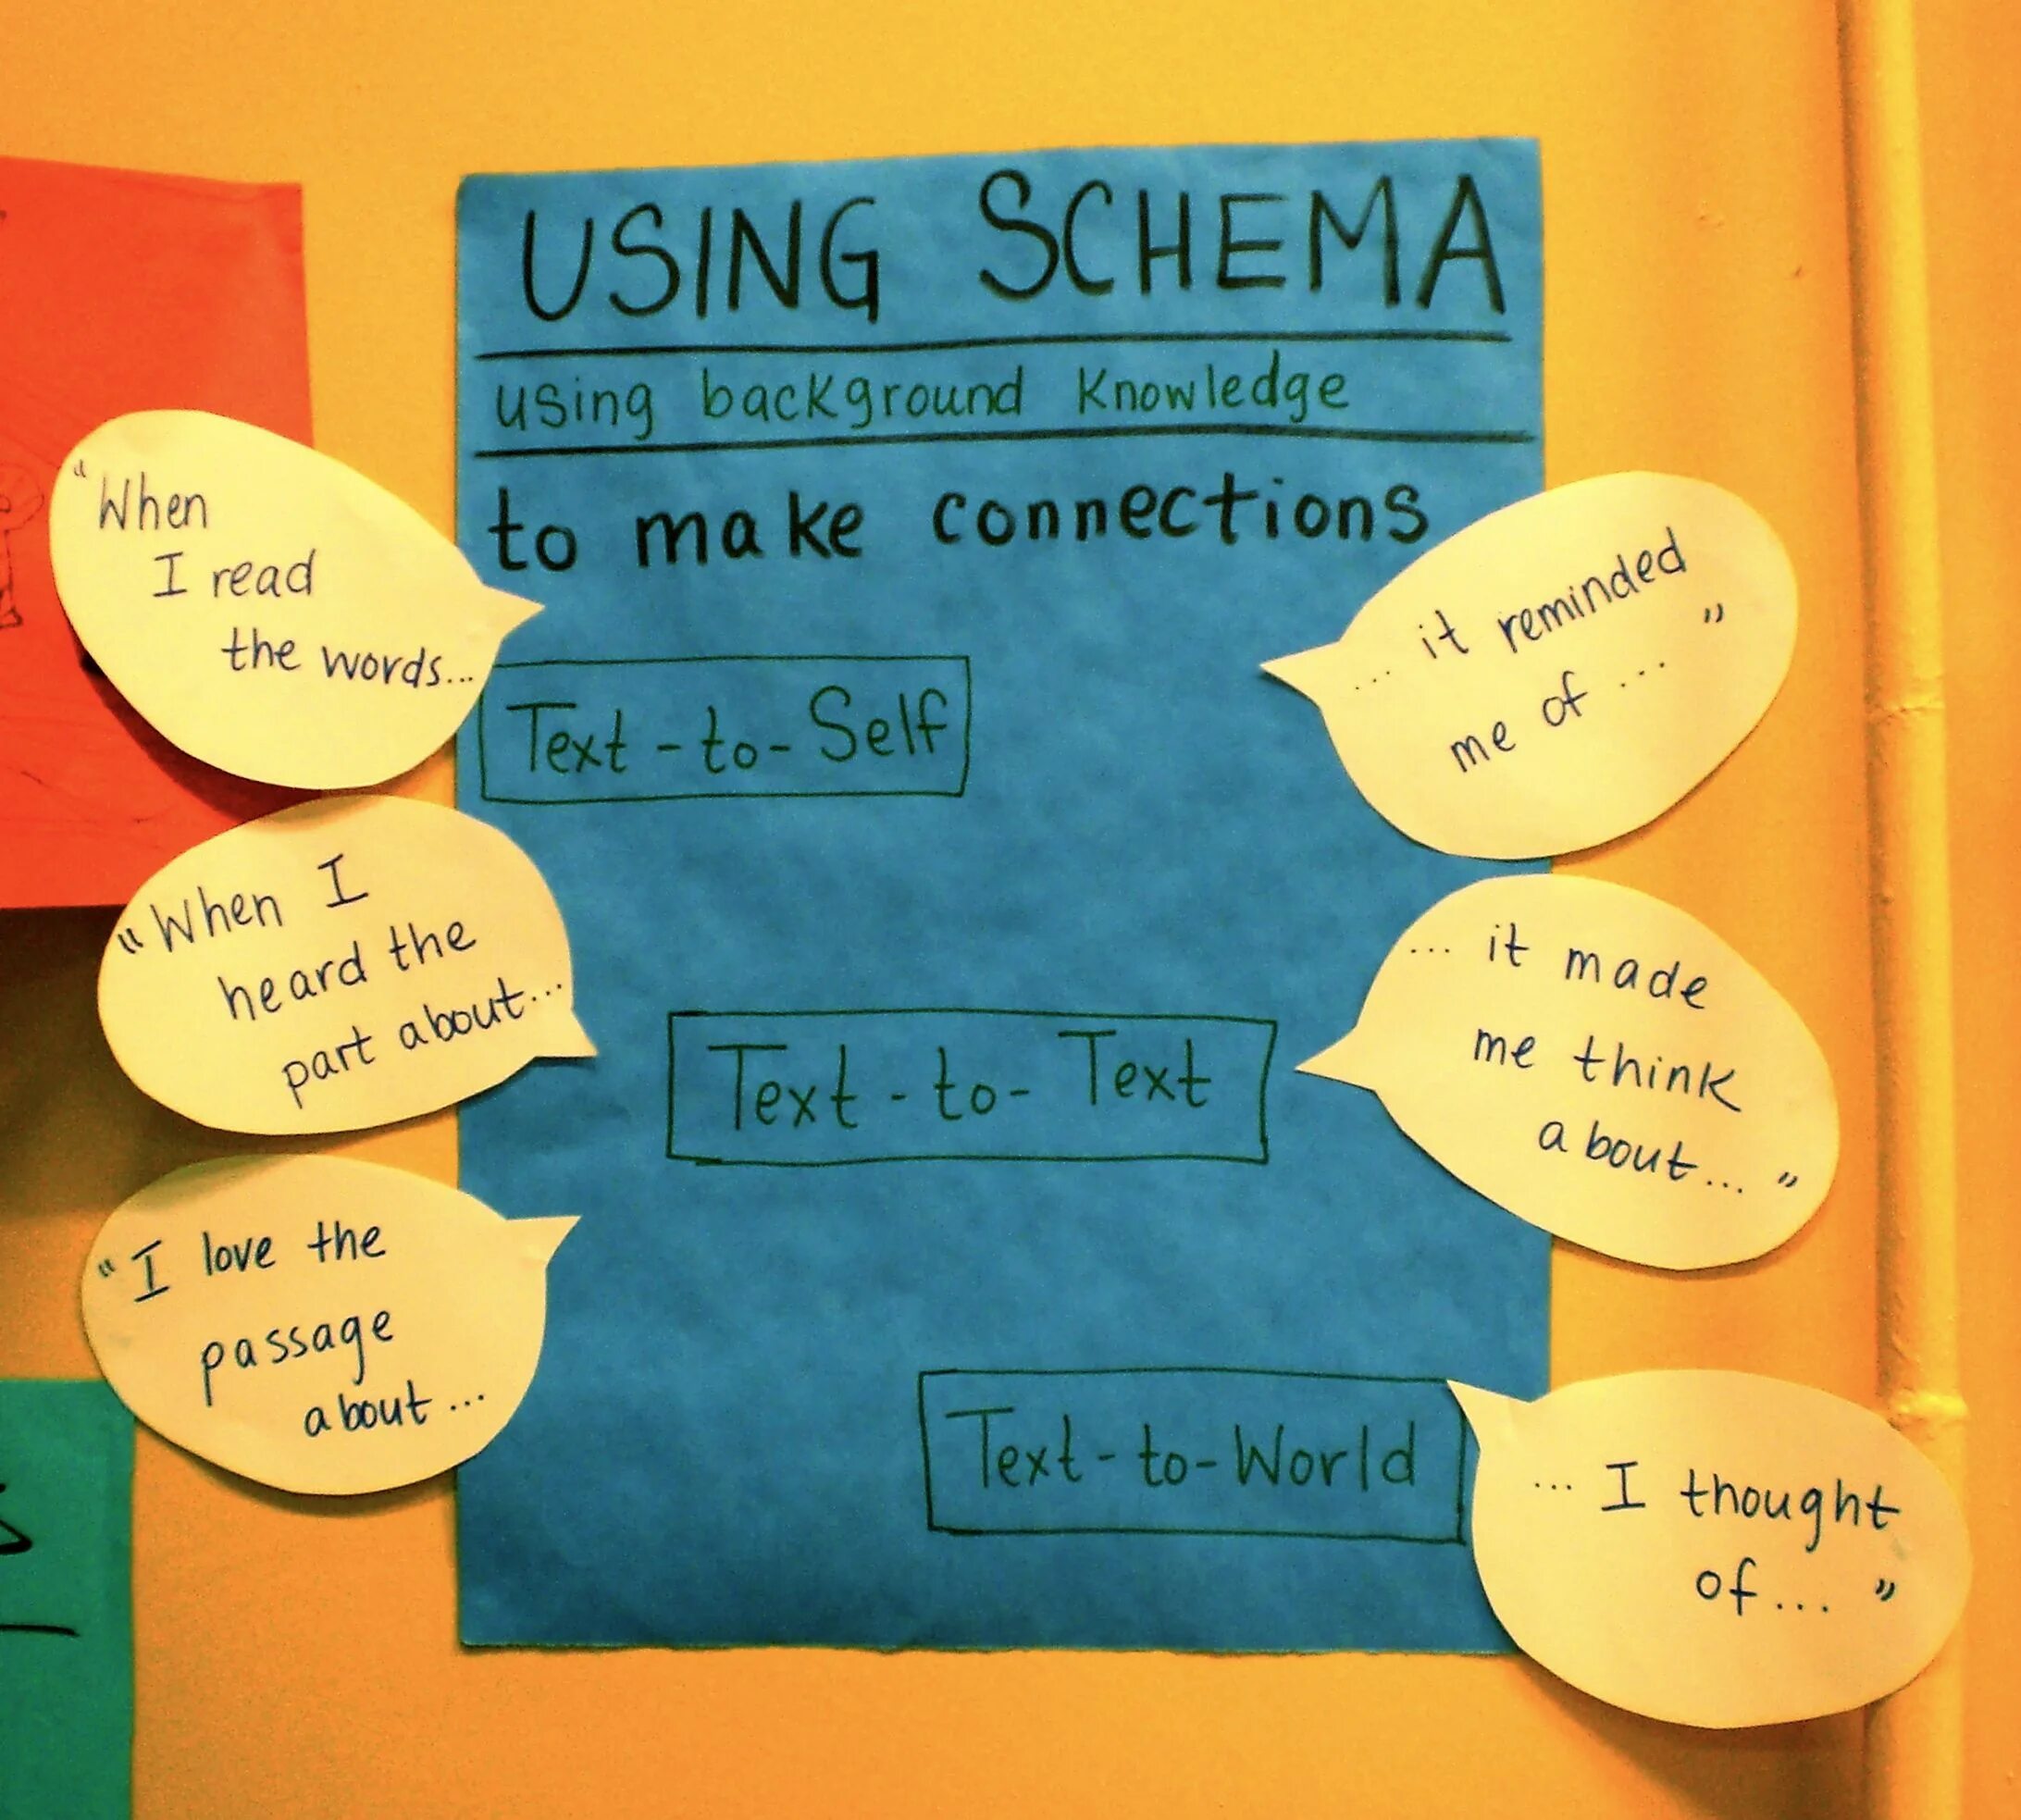 USING SCHEMA
using background Knowledge
to make connections
"When
I read
the words...
... it reminded
me of ... "
Text-to-Self
"When I
heard the
part about...
... it made
me think
about... "
Text-to-Text
"I love the
passage
about...
Text-to-World
... I thought
of... "